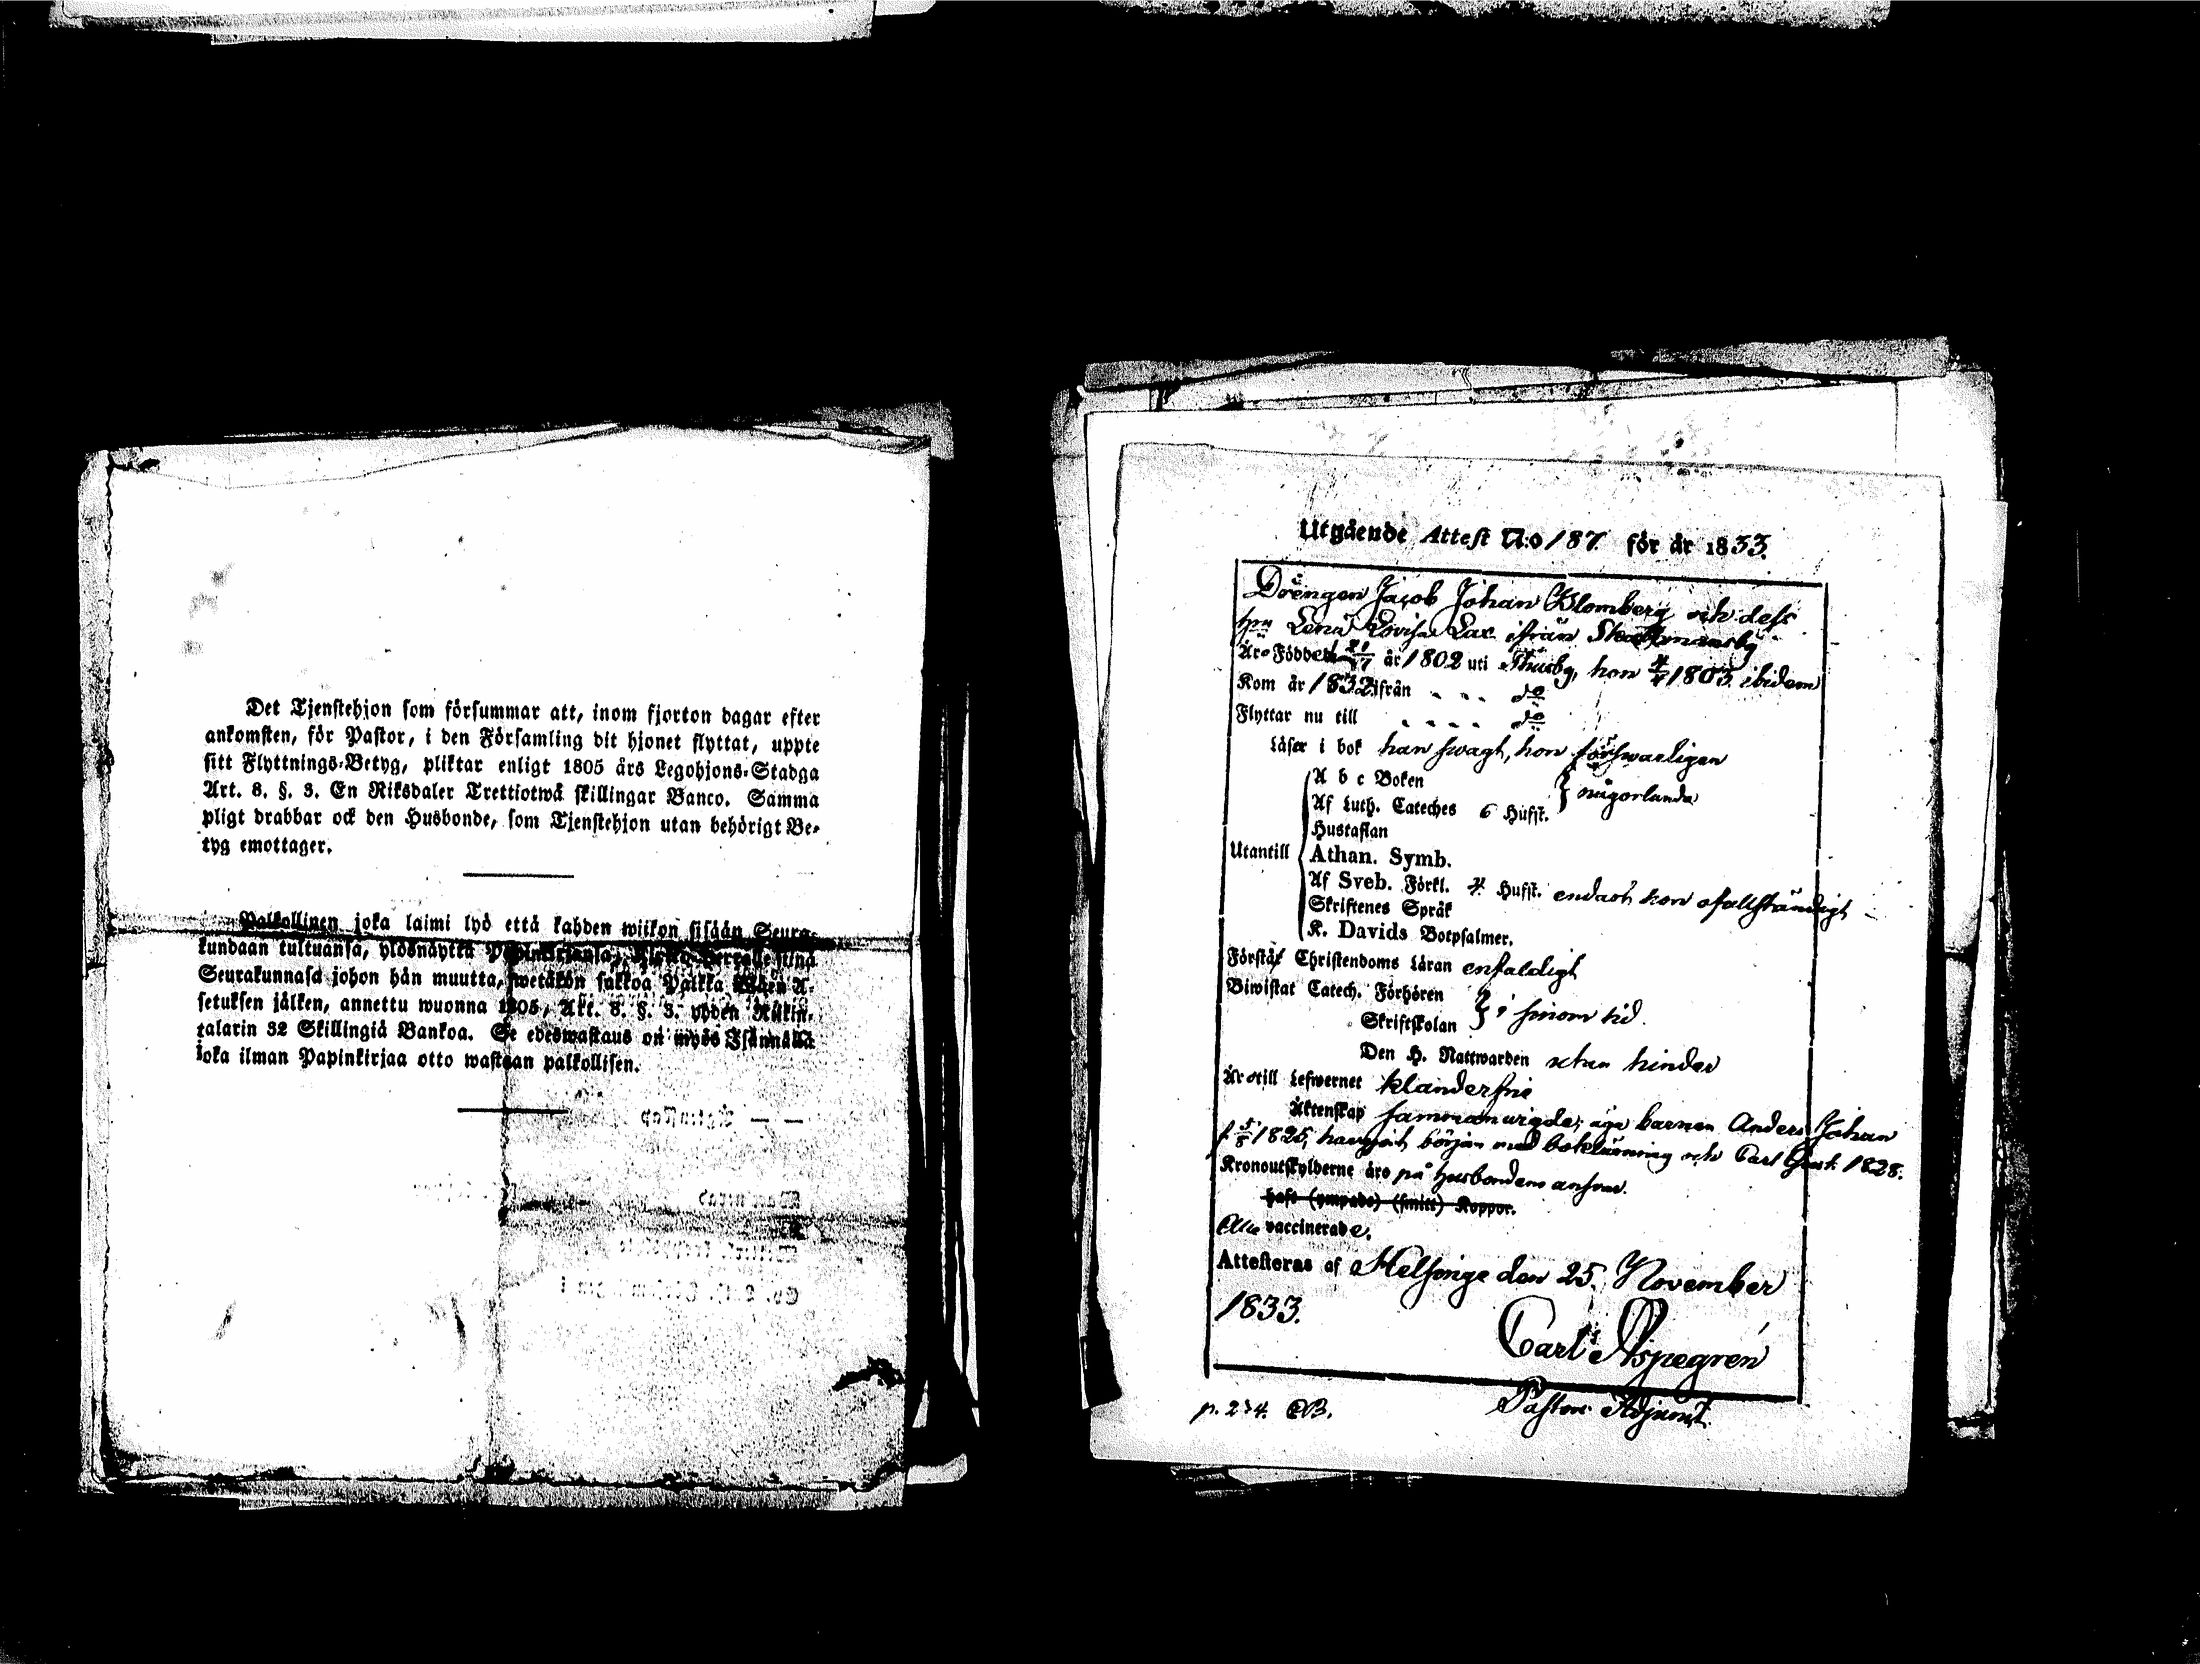 Det Tjenstehjon som försummar att, inom fjorton dagar efter
ankomsten, för Pastor, i den Församling dit hjonet flyttat, uppte
sitt Flyttnings-Betyg, pliktar enligt 1805 års Legohjons-Stadga
Art. 8. §. 3. En Riksdaler Trettiotwå skillingar Banco. Samma
pligt drabbar ock den Husbonde, som Tjenstehjon utan behörigt Be-
tyg emottager.
Palkollinen joka laimi lyö että kahden wiikon sisään Seura-
kundaan tultuansa, ylösnäyttä
Seurakunnasa johon hän muutta, wetäkön sakkoa Palkka A-
setuksen jälken, annettu wuonna 1805, Art. 8. §. 3. yhden Riikin-
talarin 32 Skillingiä Bankoa. Se edeswastaus on myös Isännällä
joka ilman Papinkirjaa otto wastaan palkollisen.
Utgående Attest N:o 187. för år 1833.
Drengen Jacob Johan Blomberg och dess
hru Lena Lovisa Lax ifrån
Äro Födde år 1802 uti Thusby, hon 1803 ibidem
Kom år 1832 ifrån - - - do
Flyttar nu till - - - - do
Läser i bok han swagt, hon förswarligen
A b c Boken
Af Luth. Cateches 6 Hufst. } någorlunda
Hustaflan
Utantill Athan. Symb.
Af Sveb. Förkl. 4 Hufst. endast hon ofullständigt
Skriftenes Språk
K. Davids Botpsalmer.
Förstår Christendoms Läran enfaldigt
Biwistat Catech. Förhören
Skriftskolan } i sinom tid.
Den H. Nattwarden utan hinder
Äro till Lefwernet klanderfrie
Äktenskap sammanwigde; äga barnen Anders Johan
f. 5/8 1825, har gjort början med bokläsning och Carl Gust. 1828.
Kronoutskylderne äro på Husbondens answar.
haft (ympade) (smitt) Koppor.
Alla vaccinerade.
Attesteras af Helsinge den 25. November
1833.
Carl Aspegrén
Pastors Adjunct.
p. 234. CB.